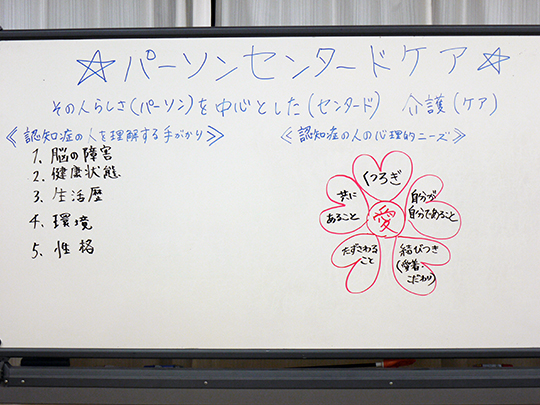 ☆パーソンセンタードケア☆
その人らしさ(パーソン)を中心とした(センタード) 介護(ケア)
≪認知症の人を理解する手がかり≫
1、脳の障害
2、健康状態
3、生活歴
4、環境
5、性格
≪認知症の人の心理的ニーズ≫
くつろぎ
共に
あること
自分が
自分であること
愛
たずさわる
こと
結びつき
(愛着・
こだわり)